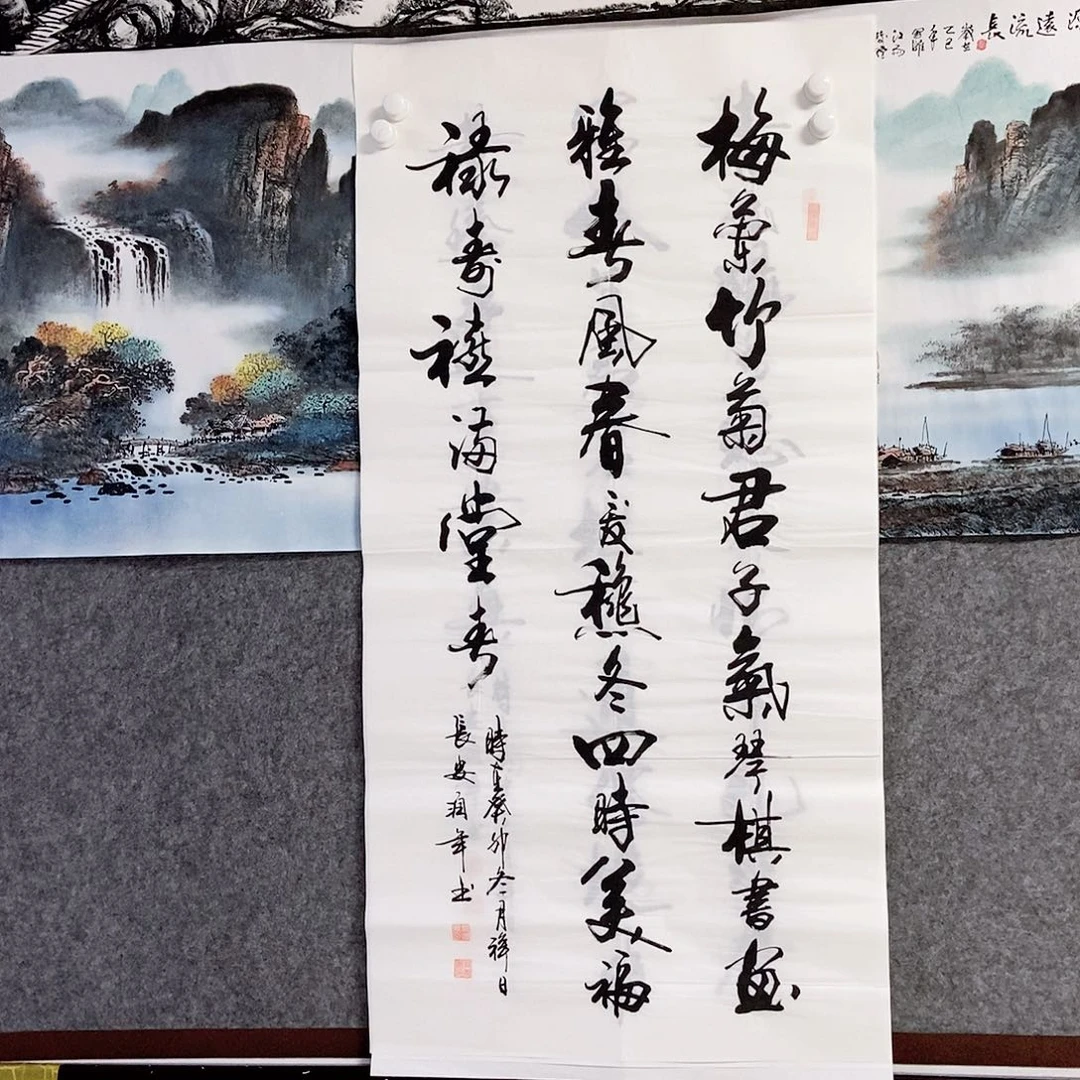 遠流長
歲在
乙巳
年
梅蘭竹菊君子氣琴棋書畫
雅春風春夏穐冬四時美福
祿壽禧滿堂春
時在癸卯冬月祥日
長安年书